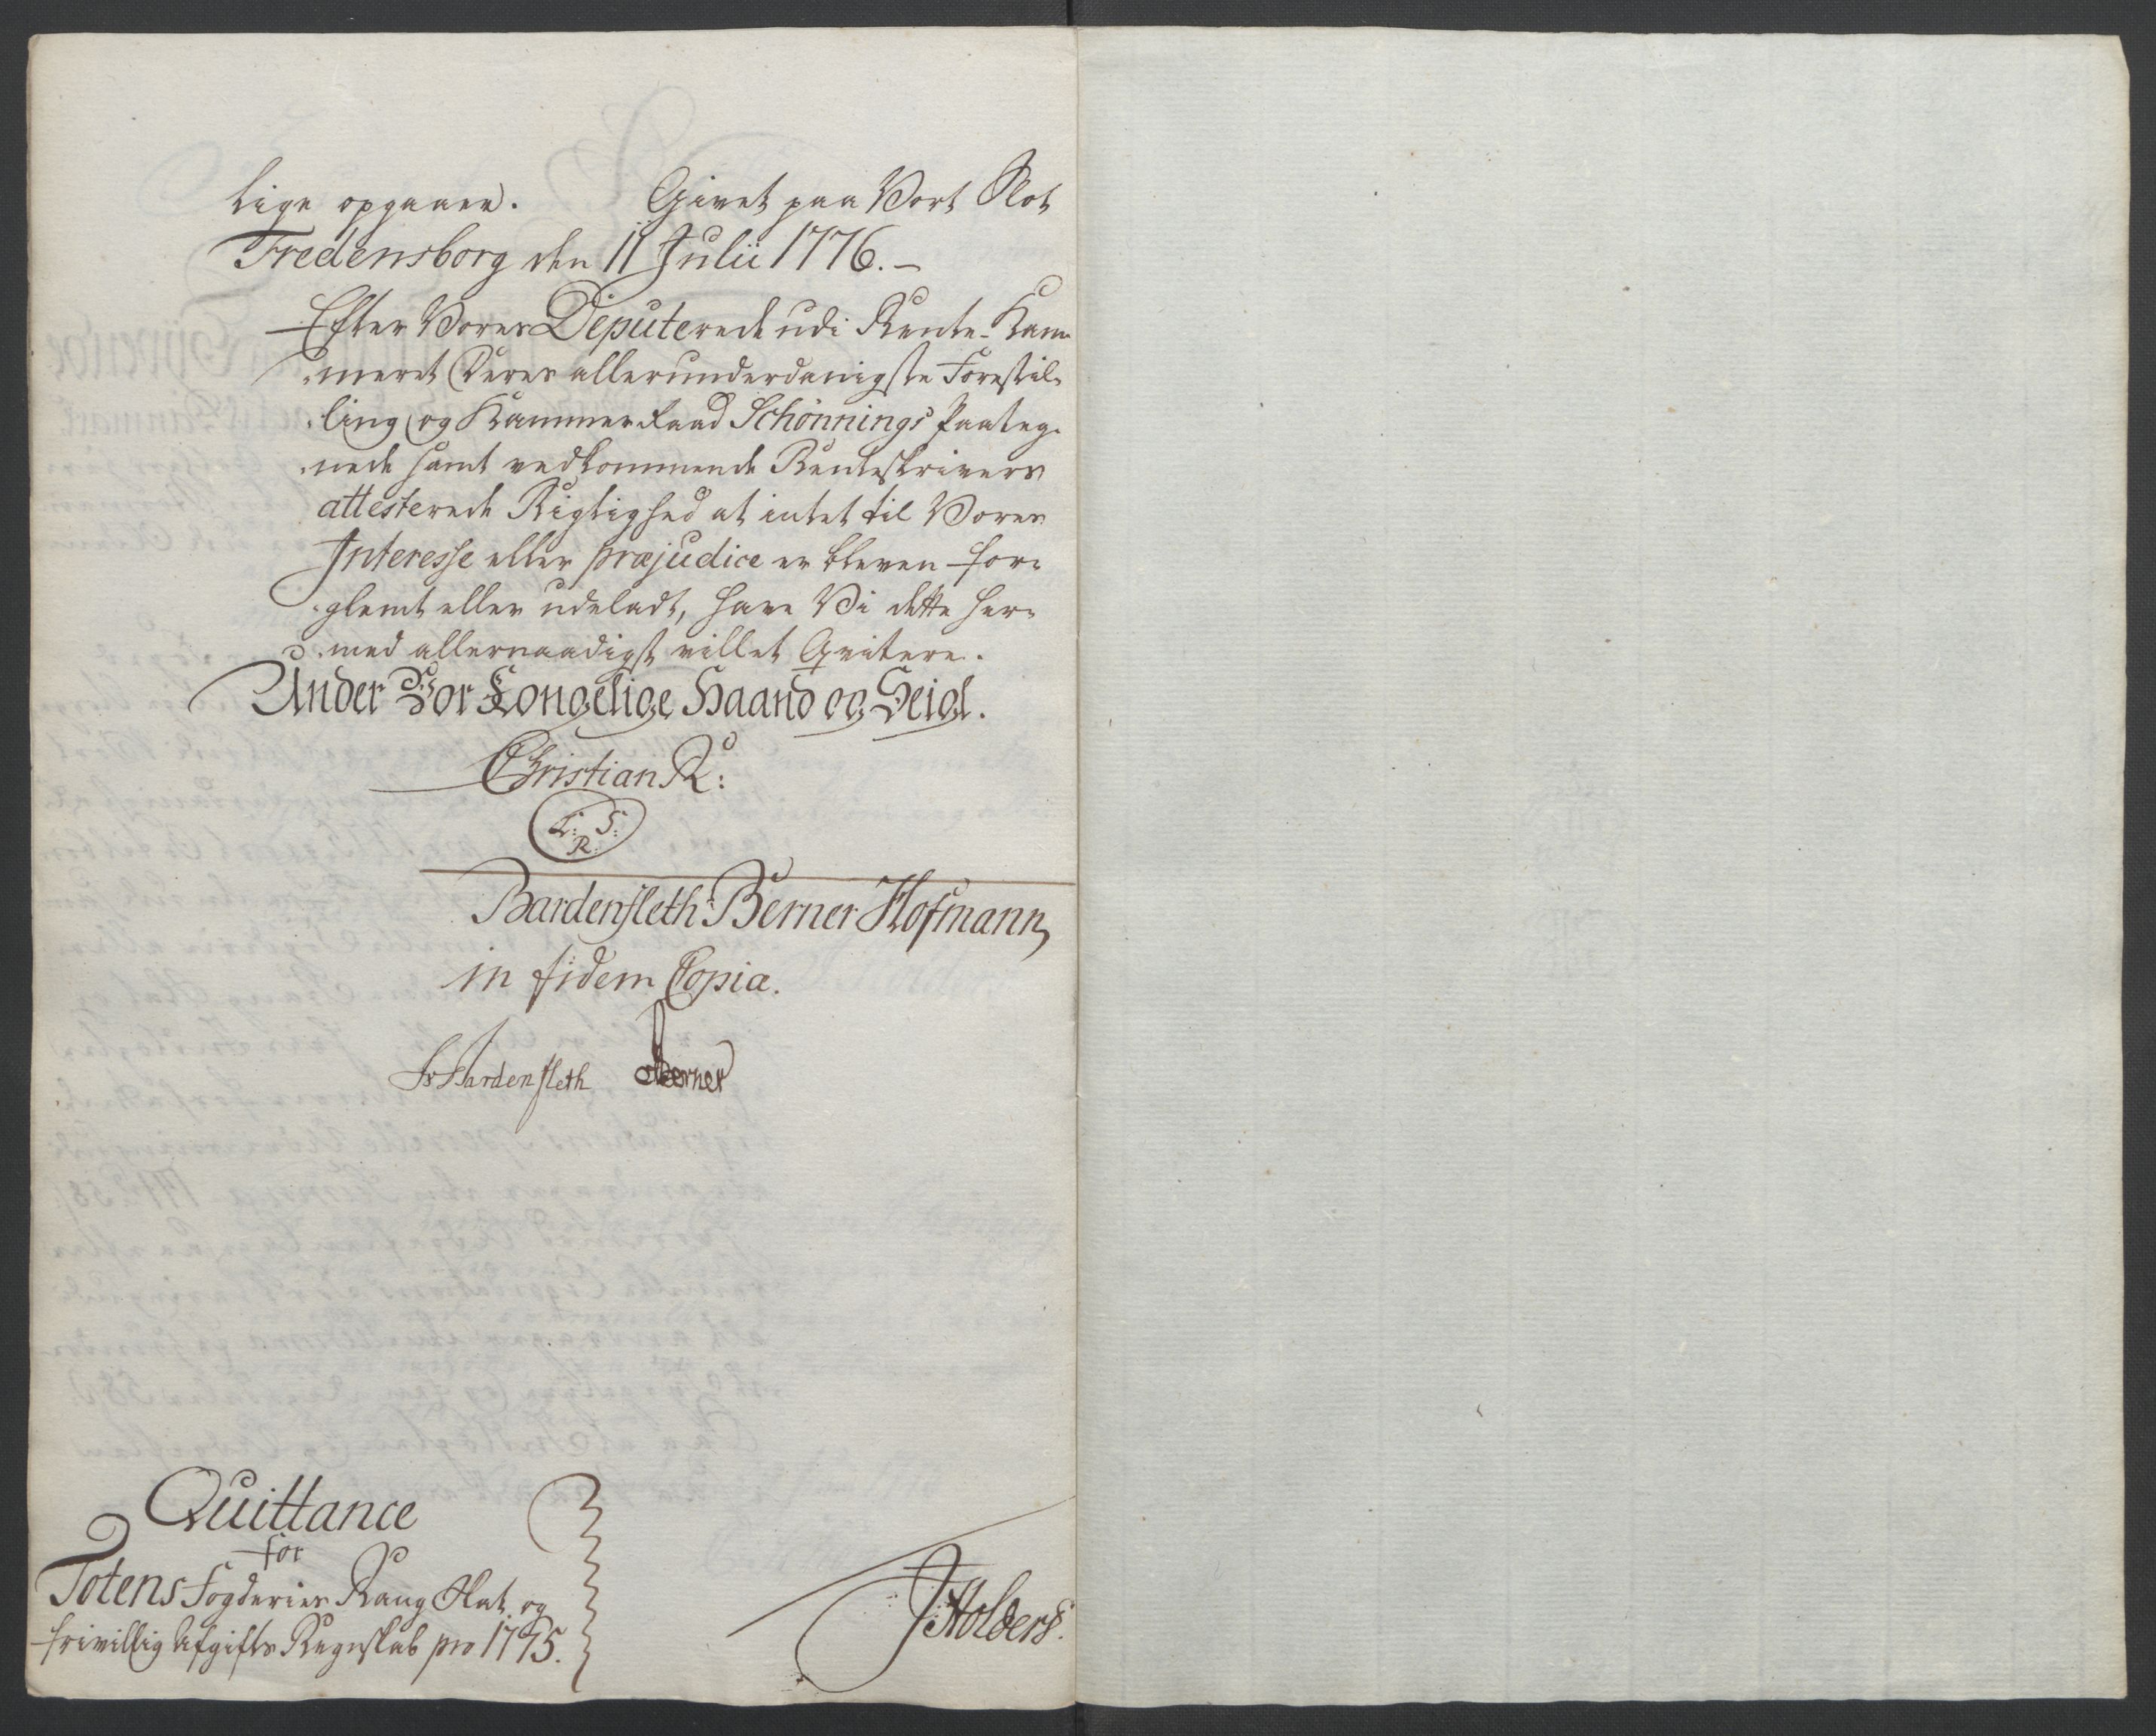 lige opgaaer. Givet paa Vort Slot
Fredensborg den 11 Julii 1776.-
Efter Vores Deputerede udi Rente-Kam-
meret Deres allerunderdanigste Forestil-
ling og Kammerraad Schønnings Paateg-
nede samt vedkommende Renteskrivers
attesterede Rigtighed at intet til Vores
Interesse eller præjudice er bleven for-
glemt eller udeladt, have Vi dette her-
med allernaadigst villet Qvitere.
Under Vor Kongelige Haand og Seigl.
Christian R:
L: S:
R:
Bardenfleth Berner Hofmann
in fidem Copia.
Bardenfleth Berner
Quittance
for
Totens Fogderies Rang Skat og
frivillig Afgifts Regnskab pro 1775.